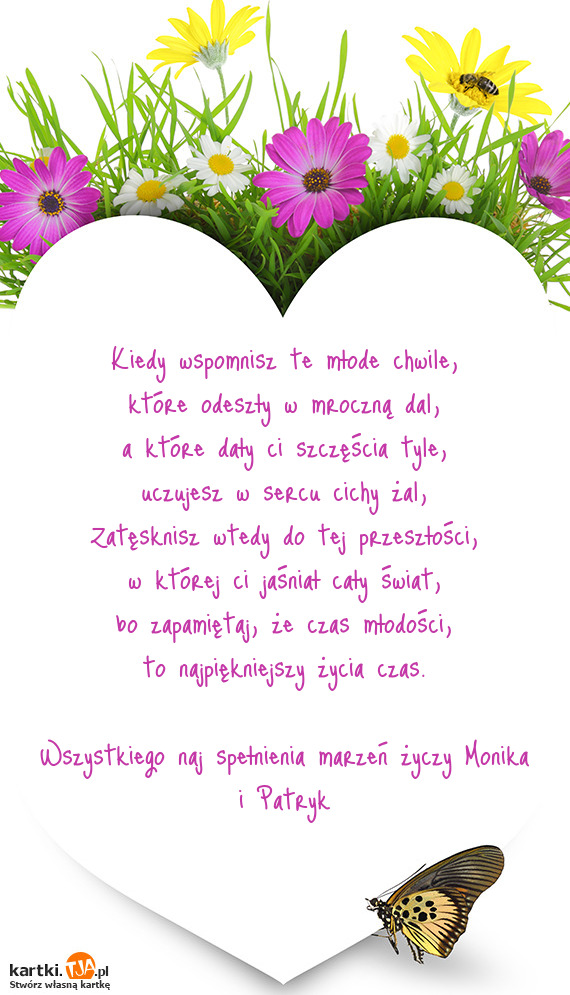 Kiedy wspomnisz te młode chwile,
które odeszły w mroczną dal,
a które dały ci szczęścia tyle,
uczujesz w sercu cichy żal,
Zatęsknisz wtedy do tej przeszłości,
w której ci jaśniał cały świat,
bo zapamiętaj, że czas młodości,
to najpiękniejszy życia czas.
Wszystkiego naj spełnienia marzeń życzy Monika
i Patryk
kartki.TJA.pl
Stwórz własną kartkę